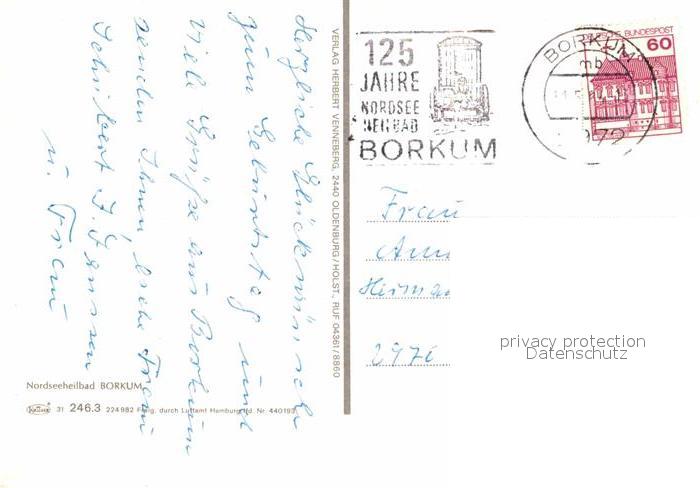 Herzliche Glückwünsche
zum Geburtstag und
viele Grüße aus Borkum
senden Ihnen, liebe Frau
u. Frau
Nordseeheilbad BORKUM
31 246.3 224 982 Freig. durch Luftamt Hamburg Nr. 440193
VERLAG HERBERT VENNEBERG, 2440 OLDENBURG/HOLST., RUF 04361/8860
125
JAHRE
NORDSEE
HEILBAD
BORKUM
BORKUM
mb
2972
DEUTSCHE BUNDESPOST
60
Frau
Herman
privacy protection
Datenschutz